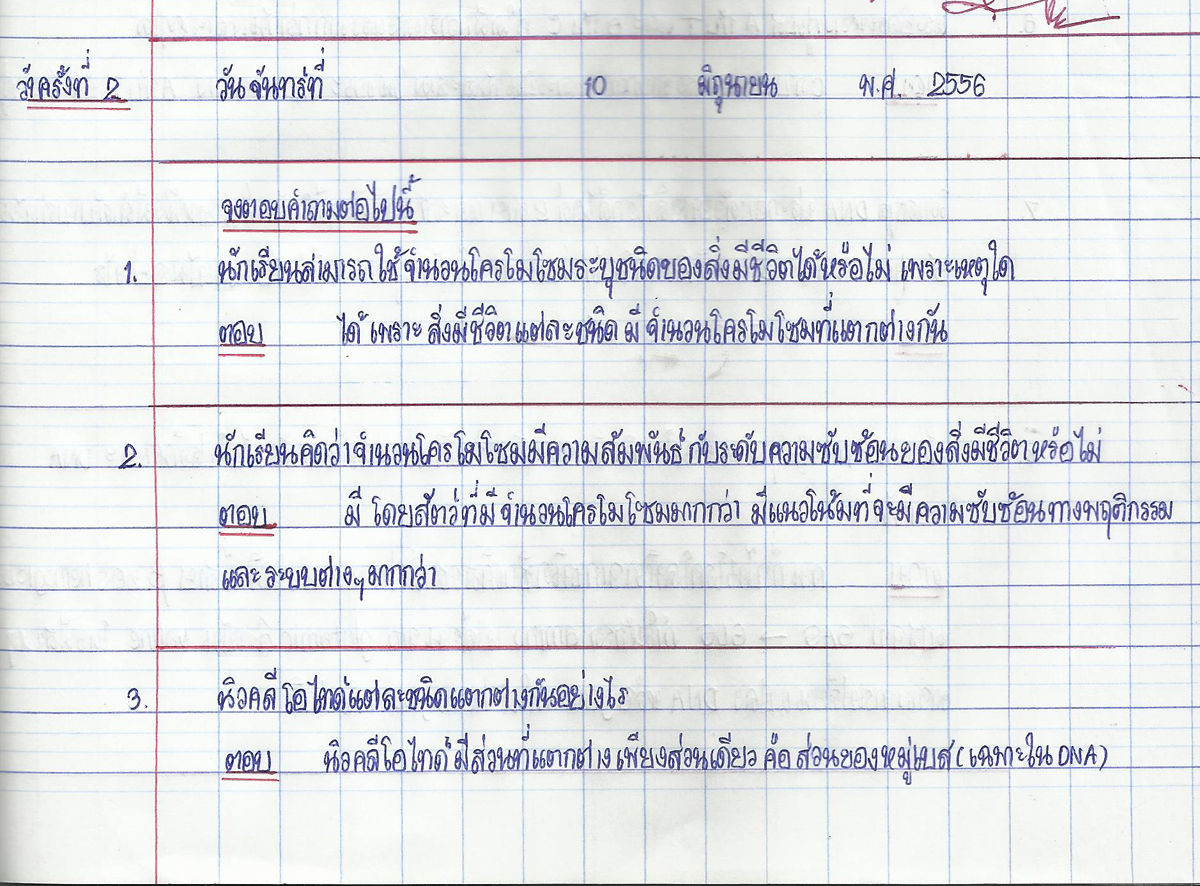 ว๊าครั้งที่ 2 วันจันทร์ที่ 10 มิถุนายน พ.ศ. 2556
จงตอบคำถามต่อไปนี้
1. นักเรียนสามารถใช้จำนวนโครโมโซมระบุชนิดของสิ่งมีชีวิตได้หรือไม่ เพราะเหตุใด
ตอบ ได้ เพราะ สิ่งมีชีวิตแต่ละชนิด มี จำนวนโครโมโซมที่แตกต่างกัน
2. นักเรียนคิดว่าจำนวนโครโมโซมมีความสัมพันธ์ กับระดับความซับซ้อนของสิ่งมีชีวิตหรือไม่
ตอบ มี โดยสัตว์ที่มีจำนวนโครโมโซมมากกว่า มีแนวโน้มที่จะมีความซับซ้อนทางพฤติกรรม
และระบบต่างๆมากกว่า
3. นิวคลีโอไทด์แต่ละชนิดแตกต่างกันอย่างไร
ตอบ นิวคลีโอไทด์ มีส่วนที่แตกต่างเพียงส่วนเดียว คือ ส่วนของหมู่เบส (เฉพาะใน DNA)